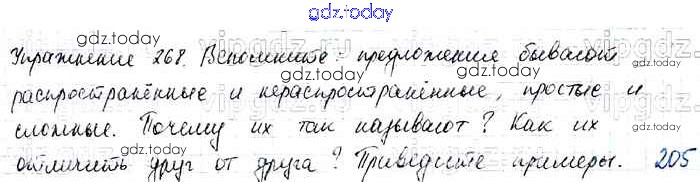 gdz.today
gdz.today
Упражнение 268. Вспомните: предложения бывают
gdz.today
распространённые и нераспространённые, простые и
gdz.today
сложные. Почему их так называют? Как их
gdz.today
отличить друг от друга? Приведите примеры. 205